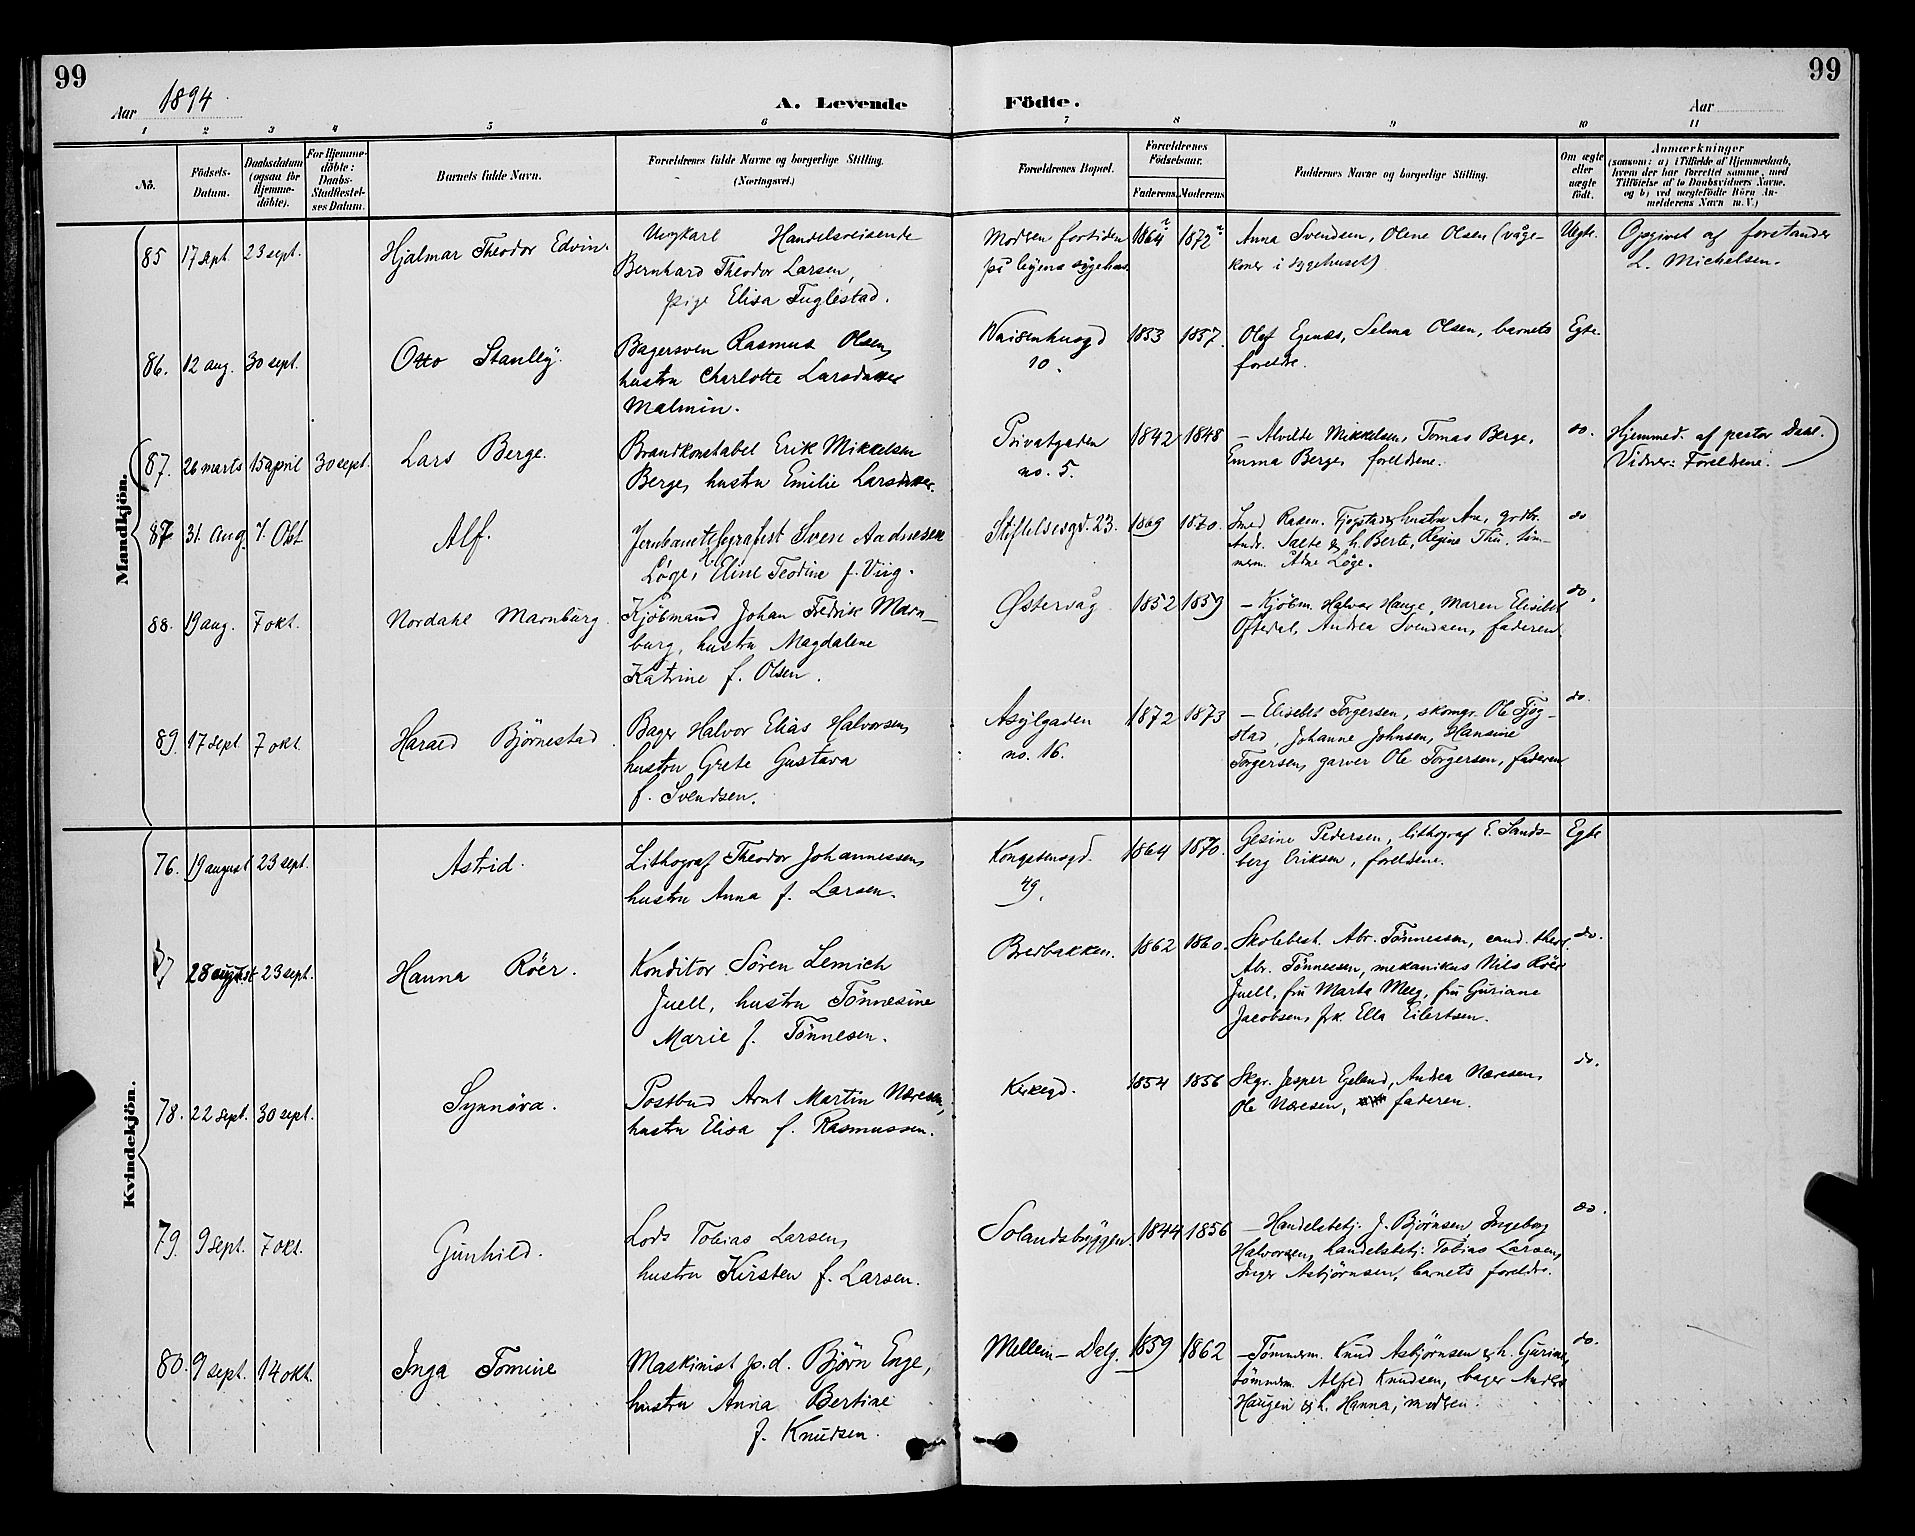 99
99
Aar 1894
A. Levende Födte.
Aar
1 2 3 4 5 6 7 8 9 10 11
No.
Födsels-Datum.
Daabsdatum (ogsaa för Hjemme-döbte).
For Hjemme-döbte: Daabs-Stadfæstel-ses Datum.
Barnets fulde Navn.
Forældrenes fulde Navne og borgerlige Stilling. (Næringsvei.)
Forældrenes Bopæl.
Forældrenes Födselsaar.
Faderens Moderens
Faddernes Navne og borgerlige Stilling.
Om ægte eller uægte født.
Anmærkninger
(saasom: a) i Tilfælde af Hjemmedaab,
hvem der har forrettet samme, med
Tilföielse af to Daabsvidners Navne,
og b) ved uægtefödte Börn An-
melderens Navn m.V.)
Mandkjön.
85 17 sept 23 sept. Hjalmar Theodor Edvin. Ungkarl Handelsreisende Modsen fortiden 1864 1872 Anna Svendsen, Olene Olsen (våge- Uegte. Opgivet af forstander
Bernhard Theodor Larsen, på byens sygehus. koner i sygehuset) L. Michelsen.
pige Elisa Fuglestad.
86. 12 aug. 30 sept. Otto Stanley. Bagersven Rasmus Olsen, Waisenhusgd 1853 1857. Olaf Egenæs, Selma Olsen, barnets Egte.
hustru Charlotte Larsdatter 10. foreldre.
Malmin.
(87. 26 marts 15 april 30 sept. Lars Berge. Brandkonstabel Erik Mikkelsen Privatgaden 1842 1848 – Alvilde Mikkelsen, Tomas Berge, do. Hjemmed. af pastor Dahl.
Berge, hustru Emilie Larsdatter. no. 5. Emma Berge, foreldrene. Vidner: Foreldrene.)
87 31 aug. 7. Okt Alf. Jernbanetelegrafist Sven Aadnesen Stiftelsesgd. 23. 1869 1870. Smed Rasm. Fjogstad & hustru Ane, grdbr. do
Løge, H. Eline Teodine f. Viig. Andr. Salte & h. Berte, Regine Thu, töm-
merm. Adne Løge.
88. 19 aug. 7 okt. Nordahl Marnburg. Kjöbmand Johan Fredrik Marn- Østervåg 1852 1859 – Kjöbm. Halvor Hauge, Maren Elisabet do.
burg, hustru Magdalene Oftedal, Andrea Svendsen, faderen.
Katrine f. Olsen.
89. 17 sept 7 okt. Harald Björnestad. Bager Halvor Elias Halvorsen, Asylgaden 1872 1873 – Elisabet Torgersen, skomgr. Ole Fjog- do.
hustru Grete Gustava no. 16. stad, Johanne Johnsen, Hansine
f. Svendsen. Torgersen, garver Ole Torgersen, faderen
Kvindekjön.
76. 19 august 23 sept. Astrid. Lithograf Theodor Johannessen, Kongstensgd. 1864 1870. Gesine Pedersen, lithograf E. Sands- Egte
hustru Anna f. Larsen. 49. berg Eriksen, foreldrene.
77 28 august 23 sept. Hanna Röer. Konditor Sören Lemich Bredbakken. 1862 1860. Skolebest. Abr. Tönnessen, cand. theol. do.
Juell, hustru Tönnesine Abr. Tönnessen, mekanikus Nils Röer
Marie f. Tönnesen. Juell, fru Marta Meeg, fru Guriane
Jacobsen, frk. Ella Eilertsen.
78. 22 sept. 30 sept. Synnöva. Postbud Arnt Martin Næresen, Kirkegd. 1854 1856 Skgr. Jesper Egeland, Andrea Næresen, do.
hustru Elisa f. Rasmussen. Ole Næresen, faderen.
79. 9 sept. 7 okt. Gunhild. Lods Tobias Larsen, Solandsbryggen. 1844 1856 – Handelsbetj. J. Björnsen Ingeborg do.
hustru Kirsten f. Larsen. Halvorsen, handelsbetj. Tobias Larsen,
Inger Asbjörnsen, barnets foreldre.
80. 9 sept. 14 okt. Inga Tomine Maskinist p.d. Björn Enge, Mellem-Dalg. 1859 1862 – Tömmerm. Knud Asbjörnsen & h. Gurine, do.
hustru Anna Bertine tömmerm. Alfred Knudsen, bager Anders
f. Knudsen. Haugen & h. Hanna, modren.